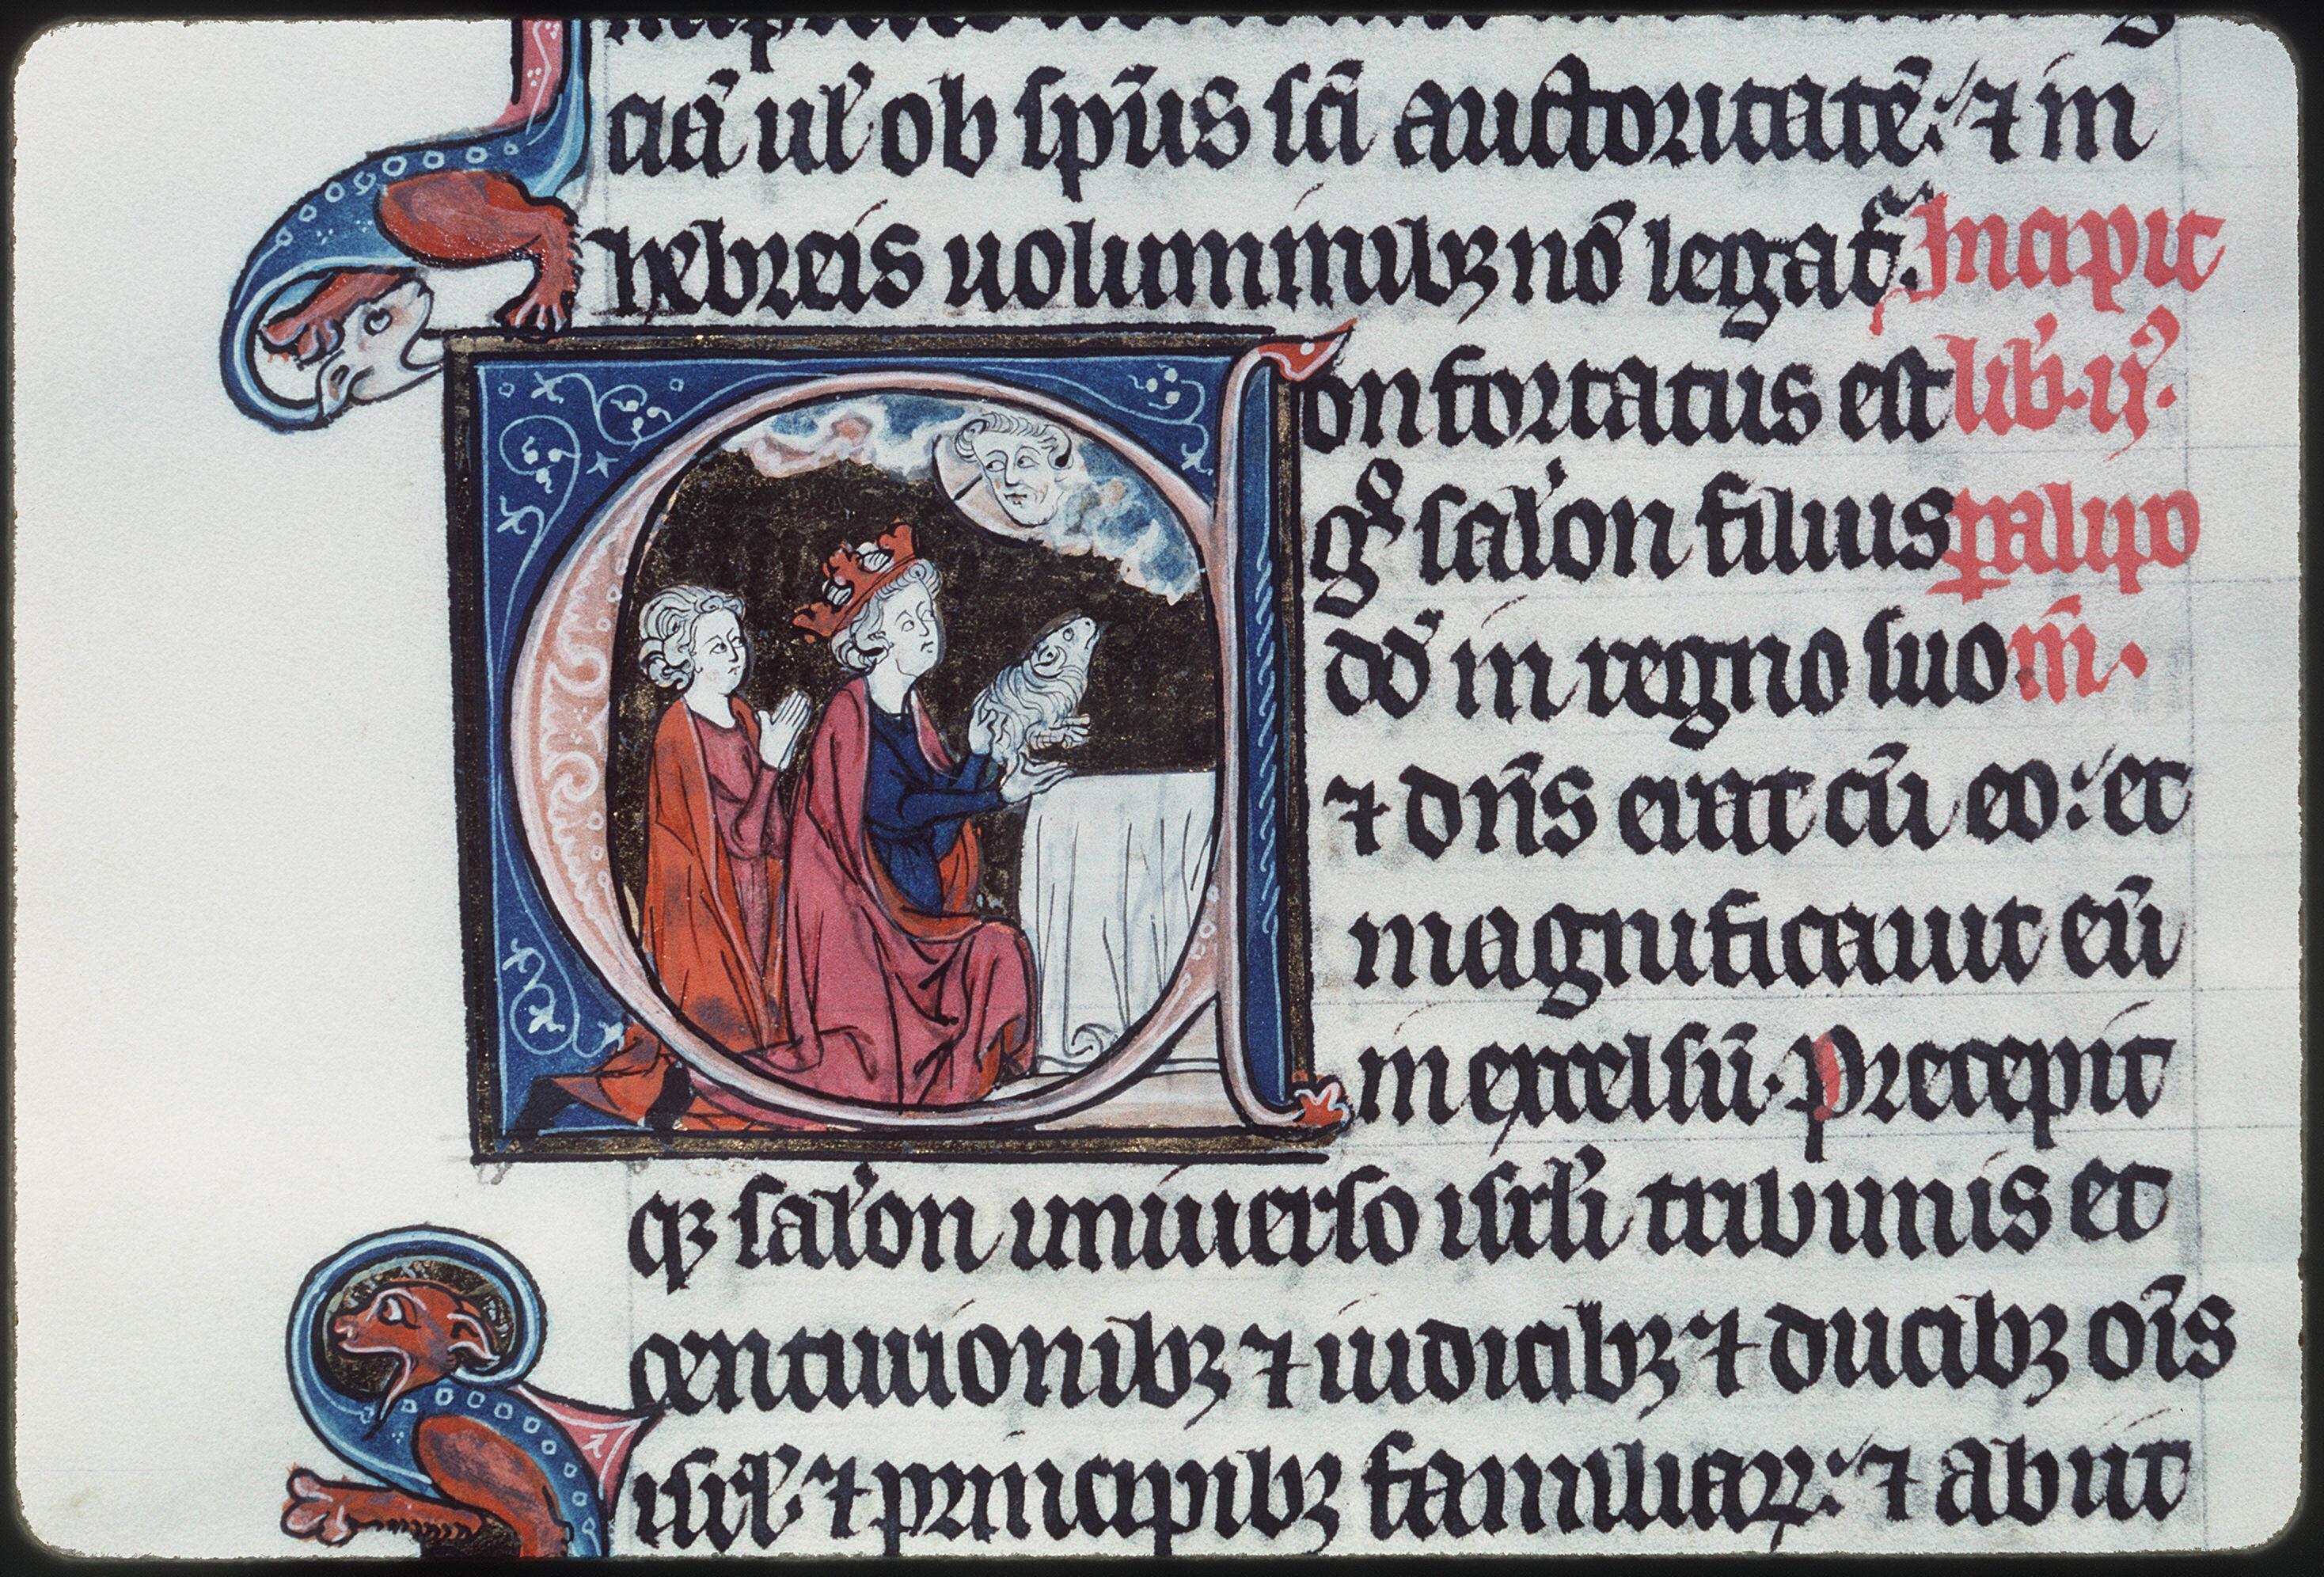 ciā ul' ob sp̄us sc̄i auctoritatē: ⁊ in
hebreis uoluminibꝫ nō legat᷑. Incipit
Confortatus est lib'. ij.
gͦ sal'on filius ꝑalipo
dd̄ in regno suo m̄.
⁊ dn̄s erat cū eo: et
magnificauit eū
in excelsū. Precepit
qꝫ sal'on uniuerso isrl'i tribunis et
centurionibꝫ ⁊ iudicibꝫ ⁊ ducibꝫ oīs
isrl' ⁊ principibꝫ familiaꝝ: ⁊ abiit